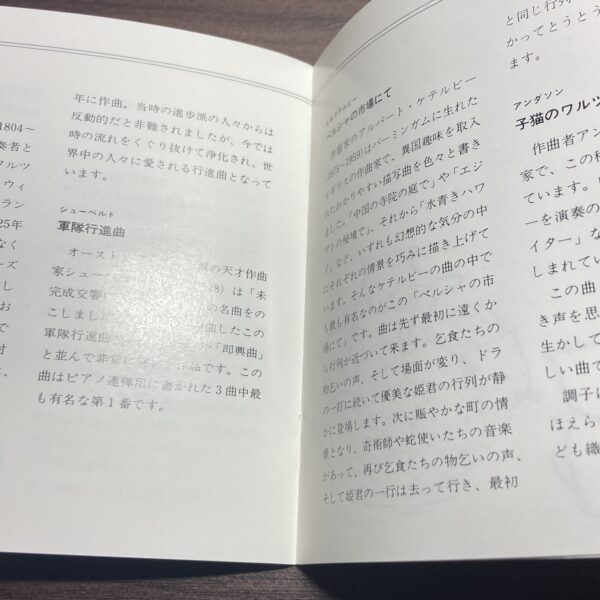 1804〜
奏者と
ワルツ
ウィ
ラン
25年
なく
ーズ
し
お
で
対
、
年に作曲。当時の進歩派の人々からは
反動的だと非難されましたが、今では
時の流れをくぐり抜けて浄化され、世
界中の人々に愛される行進曲となって
います。
シューベルト
軍隊行進曲
オースト
の天才作曲
家シュー
は「未
完成交響
の名曲をの
こしました
したこの
軍隊行進曲
「即興曲」
と並んで非常
品です。この
曲はピアノ連弾用に書かれた3曲中最
も有名な第1番です。
ケテルビー
ペルシャの市場にて
作曲家のアルバート・ケテルビー
(1875〜1959)はバーミンガムに生れた
イギリスの作曲家で、異国趣味を取入
れたわかりやすい描写曲を色々と書き
ました。「中国の寺院の庭で」や「エジ
プトの秘境で」、それから「水青きハワ
イ」など、いずれも幻想的な気分の中
にそれぞれの情景を巧みに描き上げて
います。そんなケテルビーの曲の中で
も最も有名なのがこの「ペルシャの市
場にて」です。曲は先ず最初に遠くか
ら行列が近づいて来ます。乞食たちの
物乞いの声、そして場面が変り、ドラ
の一打に続いて優美な姫君の行列が静
かに登場します。次に賑やかな町の情
景となり、奇術師や蛇使いたちの音楽
があって、再び乞食たちの物乞いの声、
そして姫君の一行は去って行き、最初
と同じ行列
かってとうとう
ます。
アンダソン
子猫のワルツ
作曲者アン
家で、この種
ています。
ーを演奏の
イター」な
しまれてい
この曲
き声を思
生かして
しい曲で
調子に
ほえら
ども織